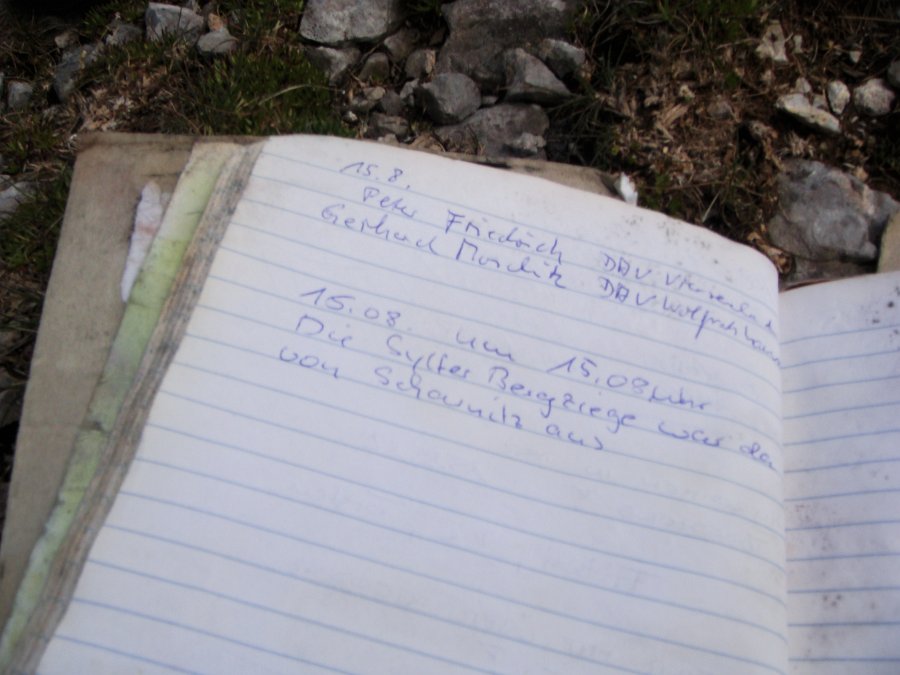 15.8.
Peter Friedrich DAV
Gerhard DAV Wolfratshausen
15.08. um 15.08 Uhr
Die Sylter Bergziege war da
von Scharnitz aus